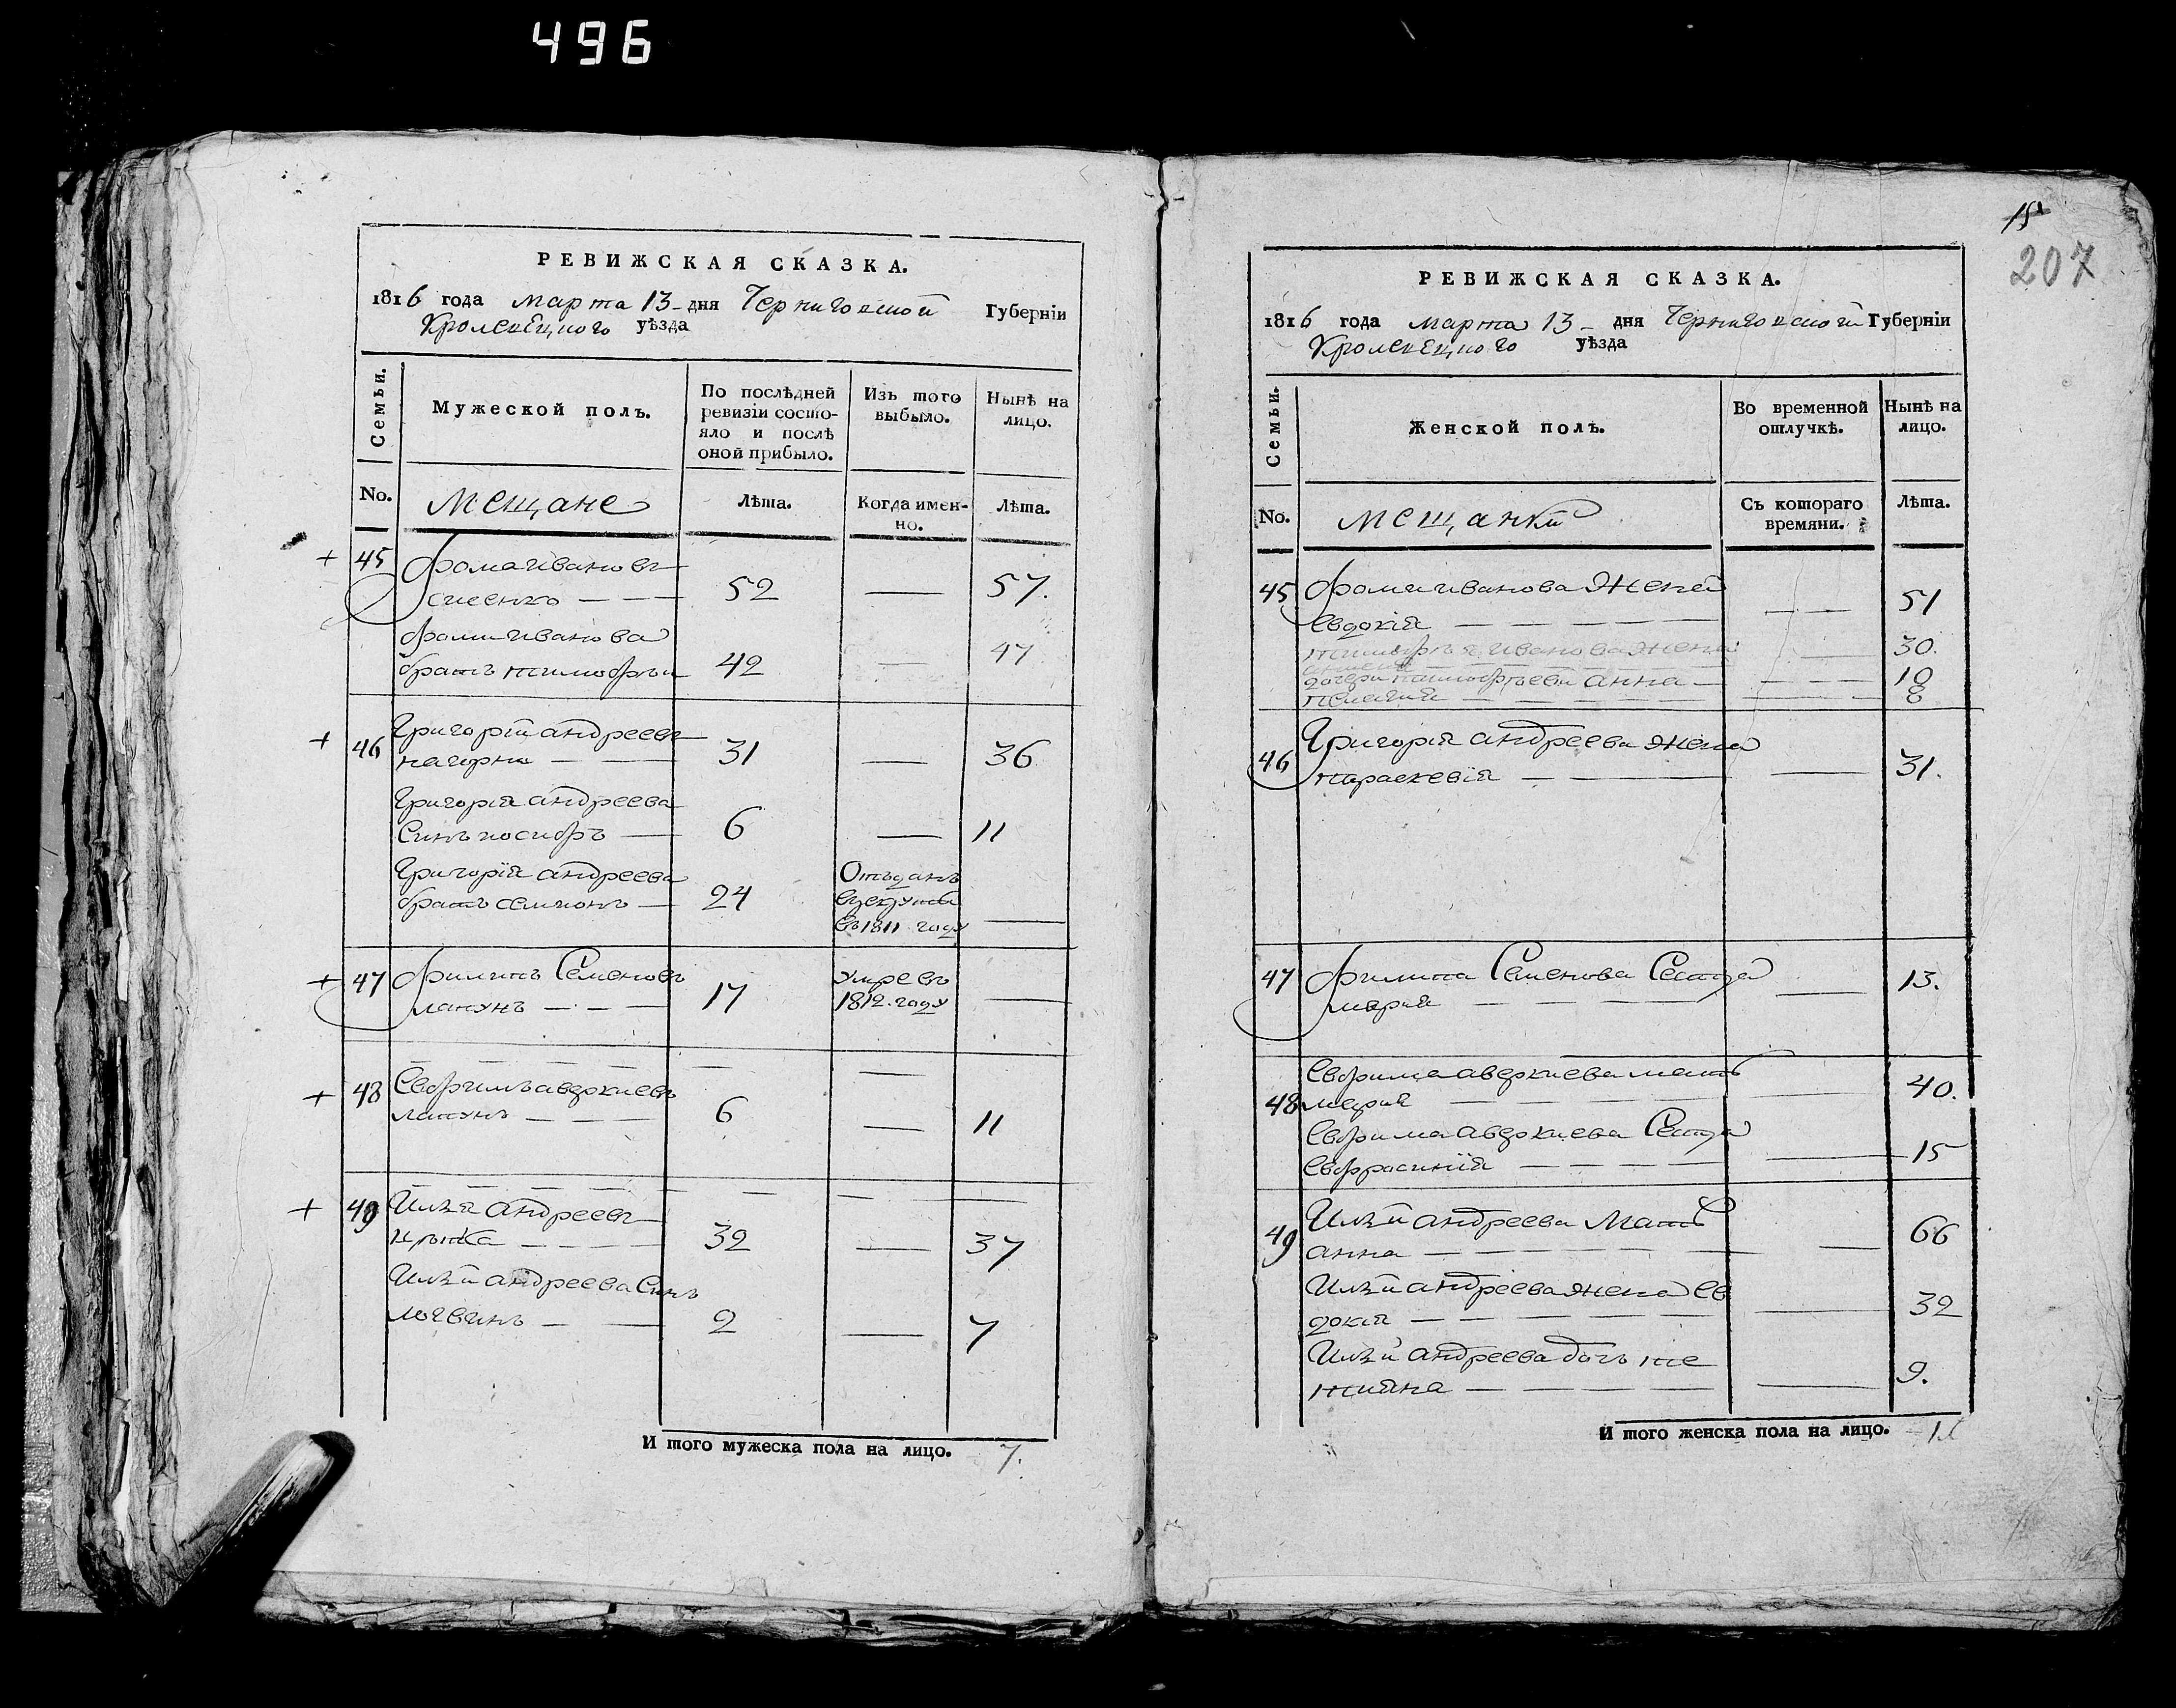 496
РЕВИЖСКАЯ СКАЗКА.
1816 года марта 13 - дня Черниговской Губерніи
Кролевецкого уѣзда
Семьи.
Мужеской полъ.
По послѣдней ревизіи состо-
яло и послѣ
оной прибыло.
Изъ того
выбыло.
Нынѣ на
лицо.
No.
Мещане
Лѣта.
Когда имен-
но.
Лѣта.
+ 45 Фома Ивановъ
52 — 57.
Фоми Иванова
братъ Тимофѣи 42 — 47
+ 46 Григорій андреевъ
31 — 36
Григорія андреева
Синъ иосифъ — 6 — 11
Григорія андреева
братъ семионъ — 24
Отъданъ
въ 1811 году —
+ 47 Филипъ Семеновъ
лапунъ — — — 17
умре въ
1812. году —
+ 48 Евфимъ аверкиевъ
лапунъ — — — 6 — 11
+ 49 Илѣя андреевъ
32 — 37
Илѣи андреева Синъ
логвинъ — — 2 — 7
И того мужеска пола на лицо. 7.
15
207
РЕВИЖСКАЯ СКАЗКА.
1816 года марта 13 - дня Черниговской Губерніи
Кролевецкого уѣзда
Семьи.
Женской полъ.
Во временной
отлучкѣ.
Нынѣ на
лицо.
No.
мещанки
Съ котораго
времяни.
Лѣта.
45 Фоми иванова жена
Евдокія — — — — — — 51
Тимофѣя иванова жена — 30.
дочери тимофѣеви анна — — — 10
пелагия — — — — — 8
46 Григорія андреева жена
параскевія — — — 31.
47 Филипа Семенова Сестра
мария — — — 13.
48 Евфима аверкиева мать
мария — — 40.
Евфима аверкиева Сестра
Евфросинія — — — — — 15
49 Илѣи андреева Мать
анна — — — — — — — 66
Илѣи андреева жена Ев
докія — — — — — — 32
Илѣи андреева дочъ те
тияна — — — — — — 9.
И того женска пола на лицо.